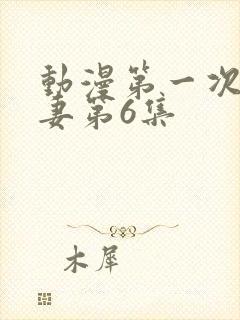 動漫第一次
妻第6集
木犀